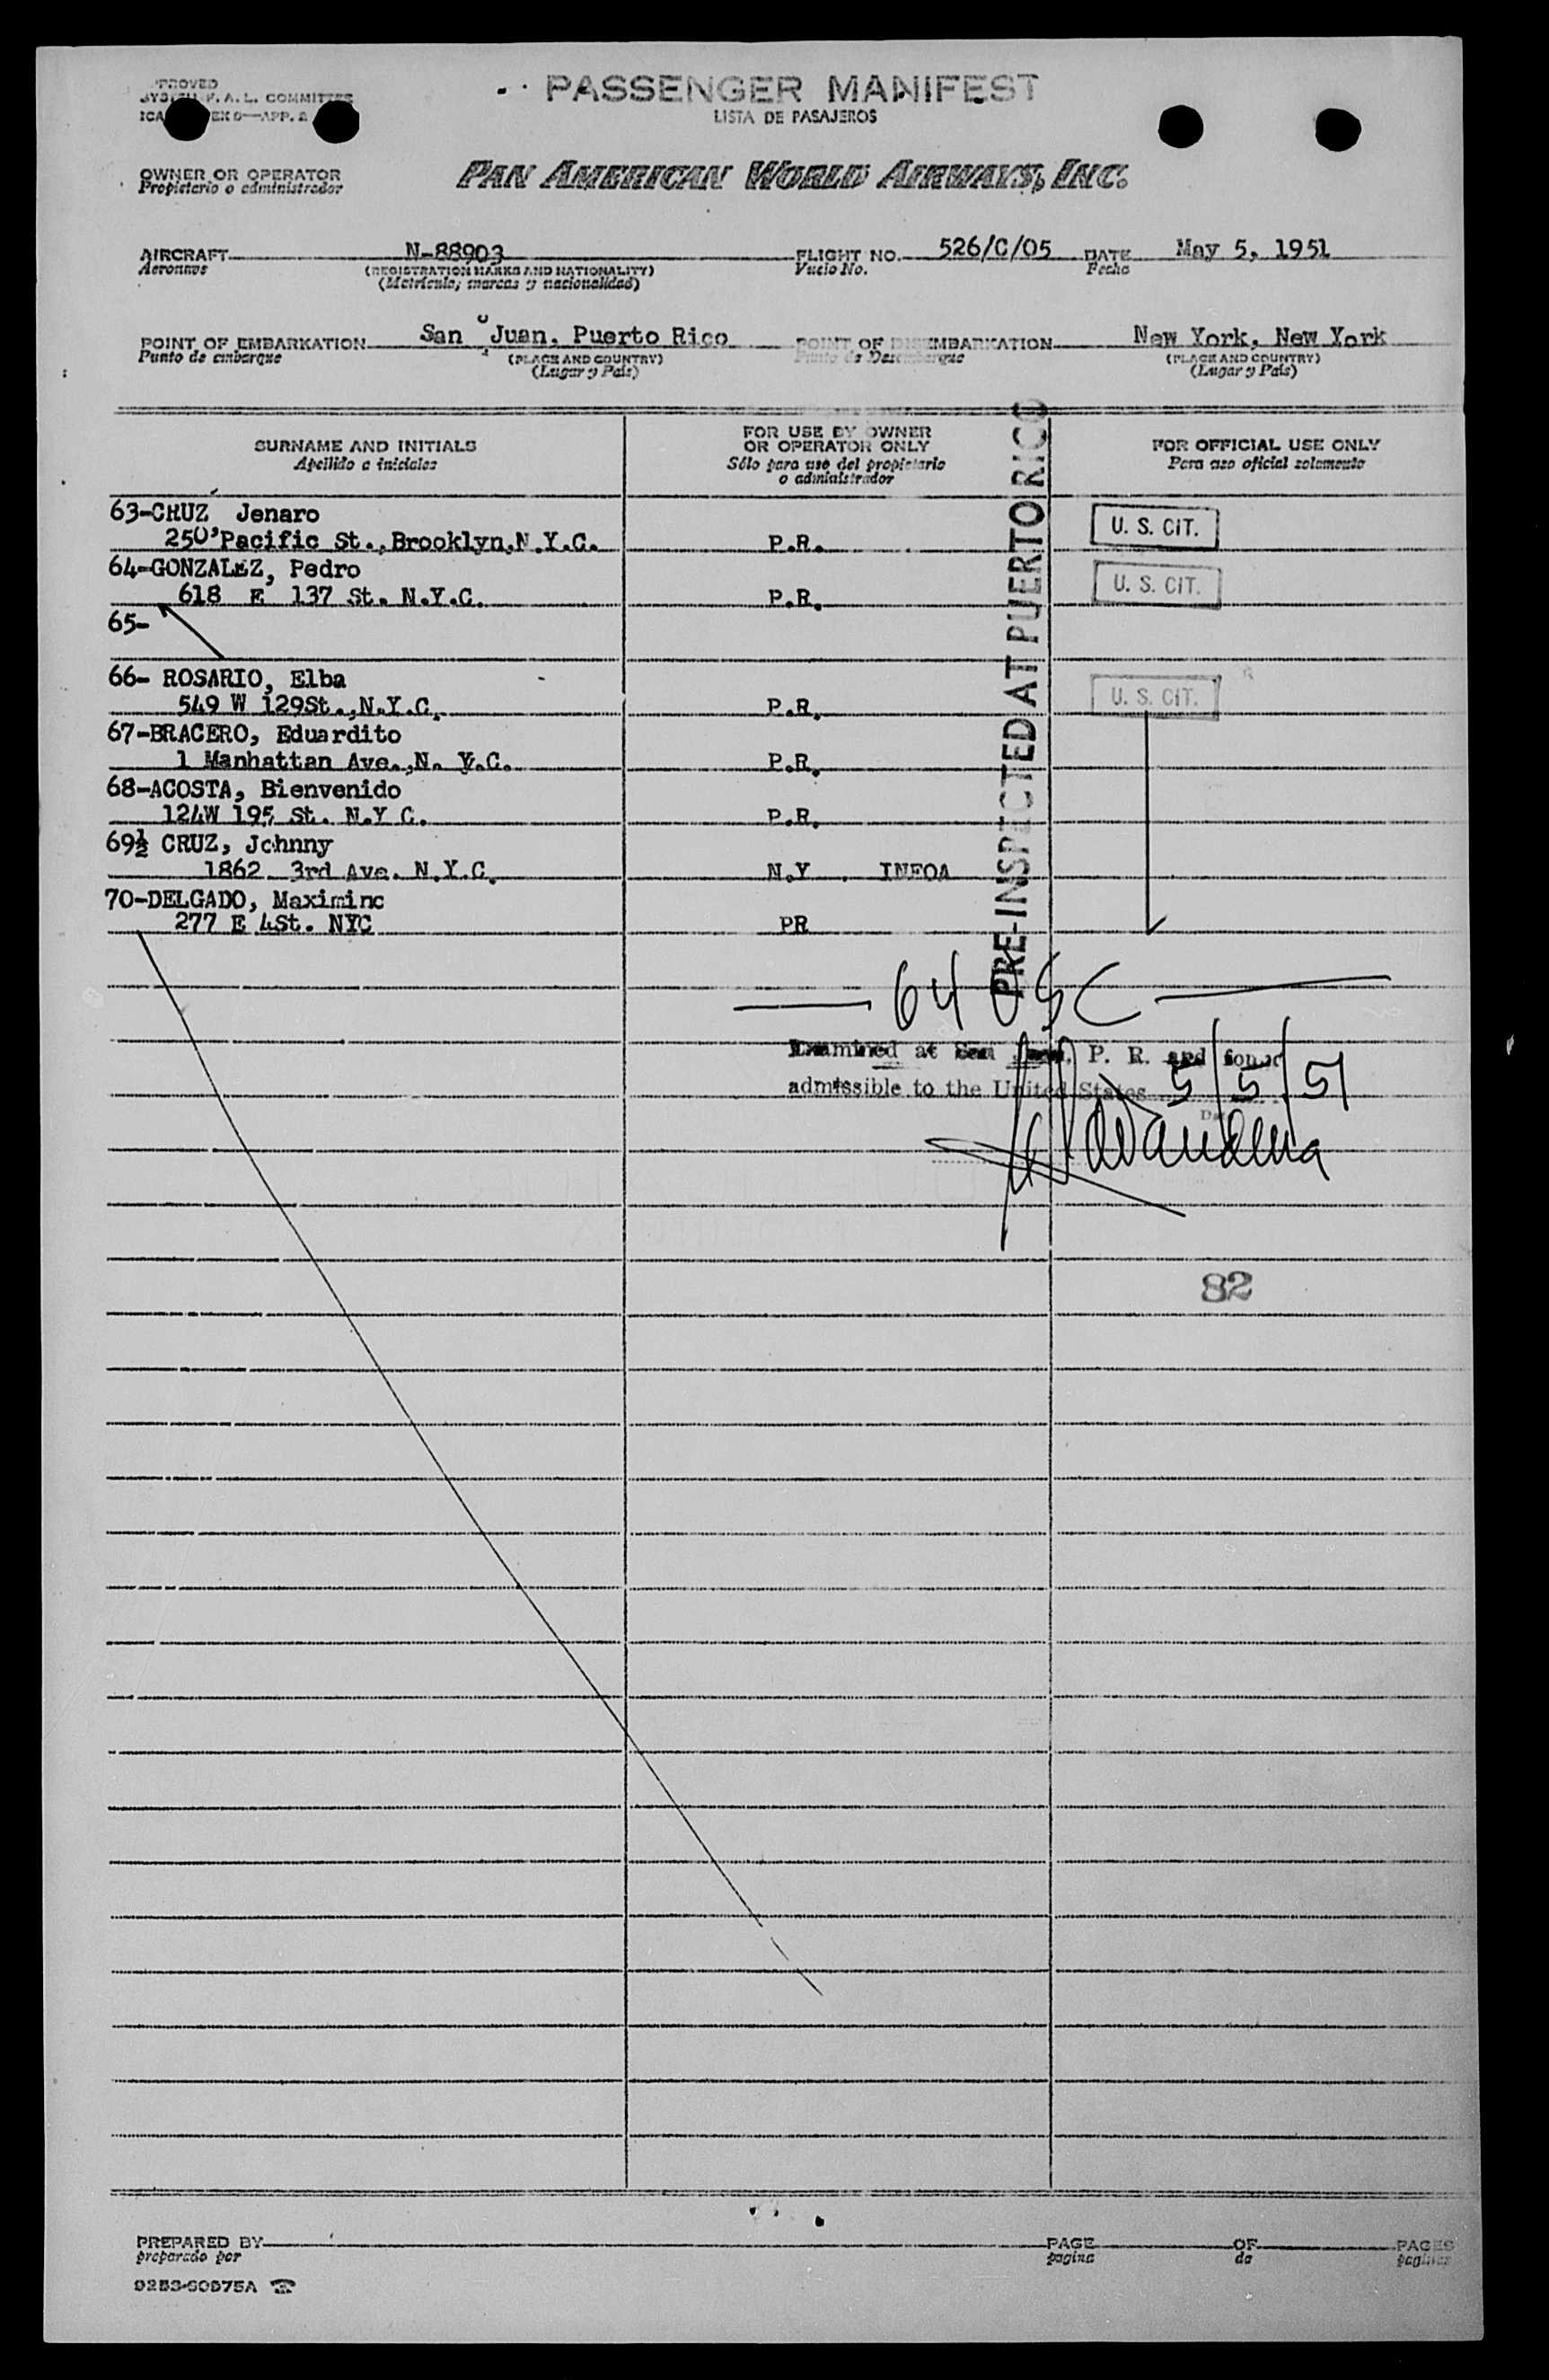 PASSENGER MANIFEST
LISTA DE PASAJEROS
OWNER OR OPERATOR
Propietario o administrador
PAN AMERICAN WORLD AIRWAYS, INC.
AIRCRAFT N-88903 FLIGHT NO. 526/C/05 DATE May 5, 1951
Aeronave (REGISTRATION MARKS AND NATIONALITY) Vuelo No. Fecha
(Matrícula, marcas y nacionalidad)
POINT OF EMBARKATION San Juan, Puerto Rico POINT OF DISEMBARKATION New York, New York
Punto de embarque (PLACE AND COUNTRY) Punto de Desembarque (PLACE AND COUNTRY)
(Lugar y País) (Lugar y País)
SURNAME AND INITIALS
Apellido e iniciales
FOR USE BY OWNER
OR OPERATOR ONLY
Sólo para uso del propietario
o administrador
FOR OFFICIAL USE ONLY
Para uso oficial solamente
PRE-INSPECTED AT PUERTO RICO
63-CRUZ Jenaro
250 Pacific St., Brooklyn, N.Y.C. P.R. U. S. CIT.
64-GONZALEZ, Pedro
618 E 137 St. N.Y.C. P.R. U. S. CIT.
65-
66- ROSARIO, Elba
549 W 129St., N.Y.C. P.R. U. S. CIT.
67-BRACERO, Eduardito
1 Manhattan Ave., N. Y.C. P.R.
68-ACOSTA, Bienvenido
124W 195 St. N.Y C. P.R.
69½ CRUZ, Johnny
1862 3rd Ave. N.Y.C. N.Y. INFOA
70-DELGADO, Maximino
277 E 4St. NYC PR
64 USC
Examined at San Juan, P. R. and found
admissible to the United States 5/5/51
82
PREPARED BY PAGE OF PAGES
preparado por pagina de paginas
9253-60975A